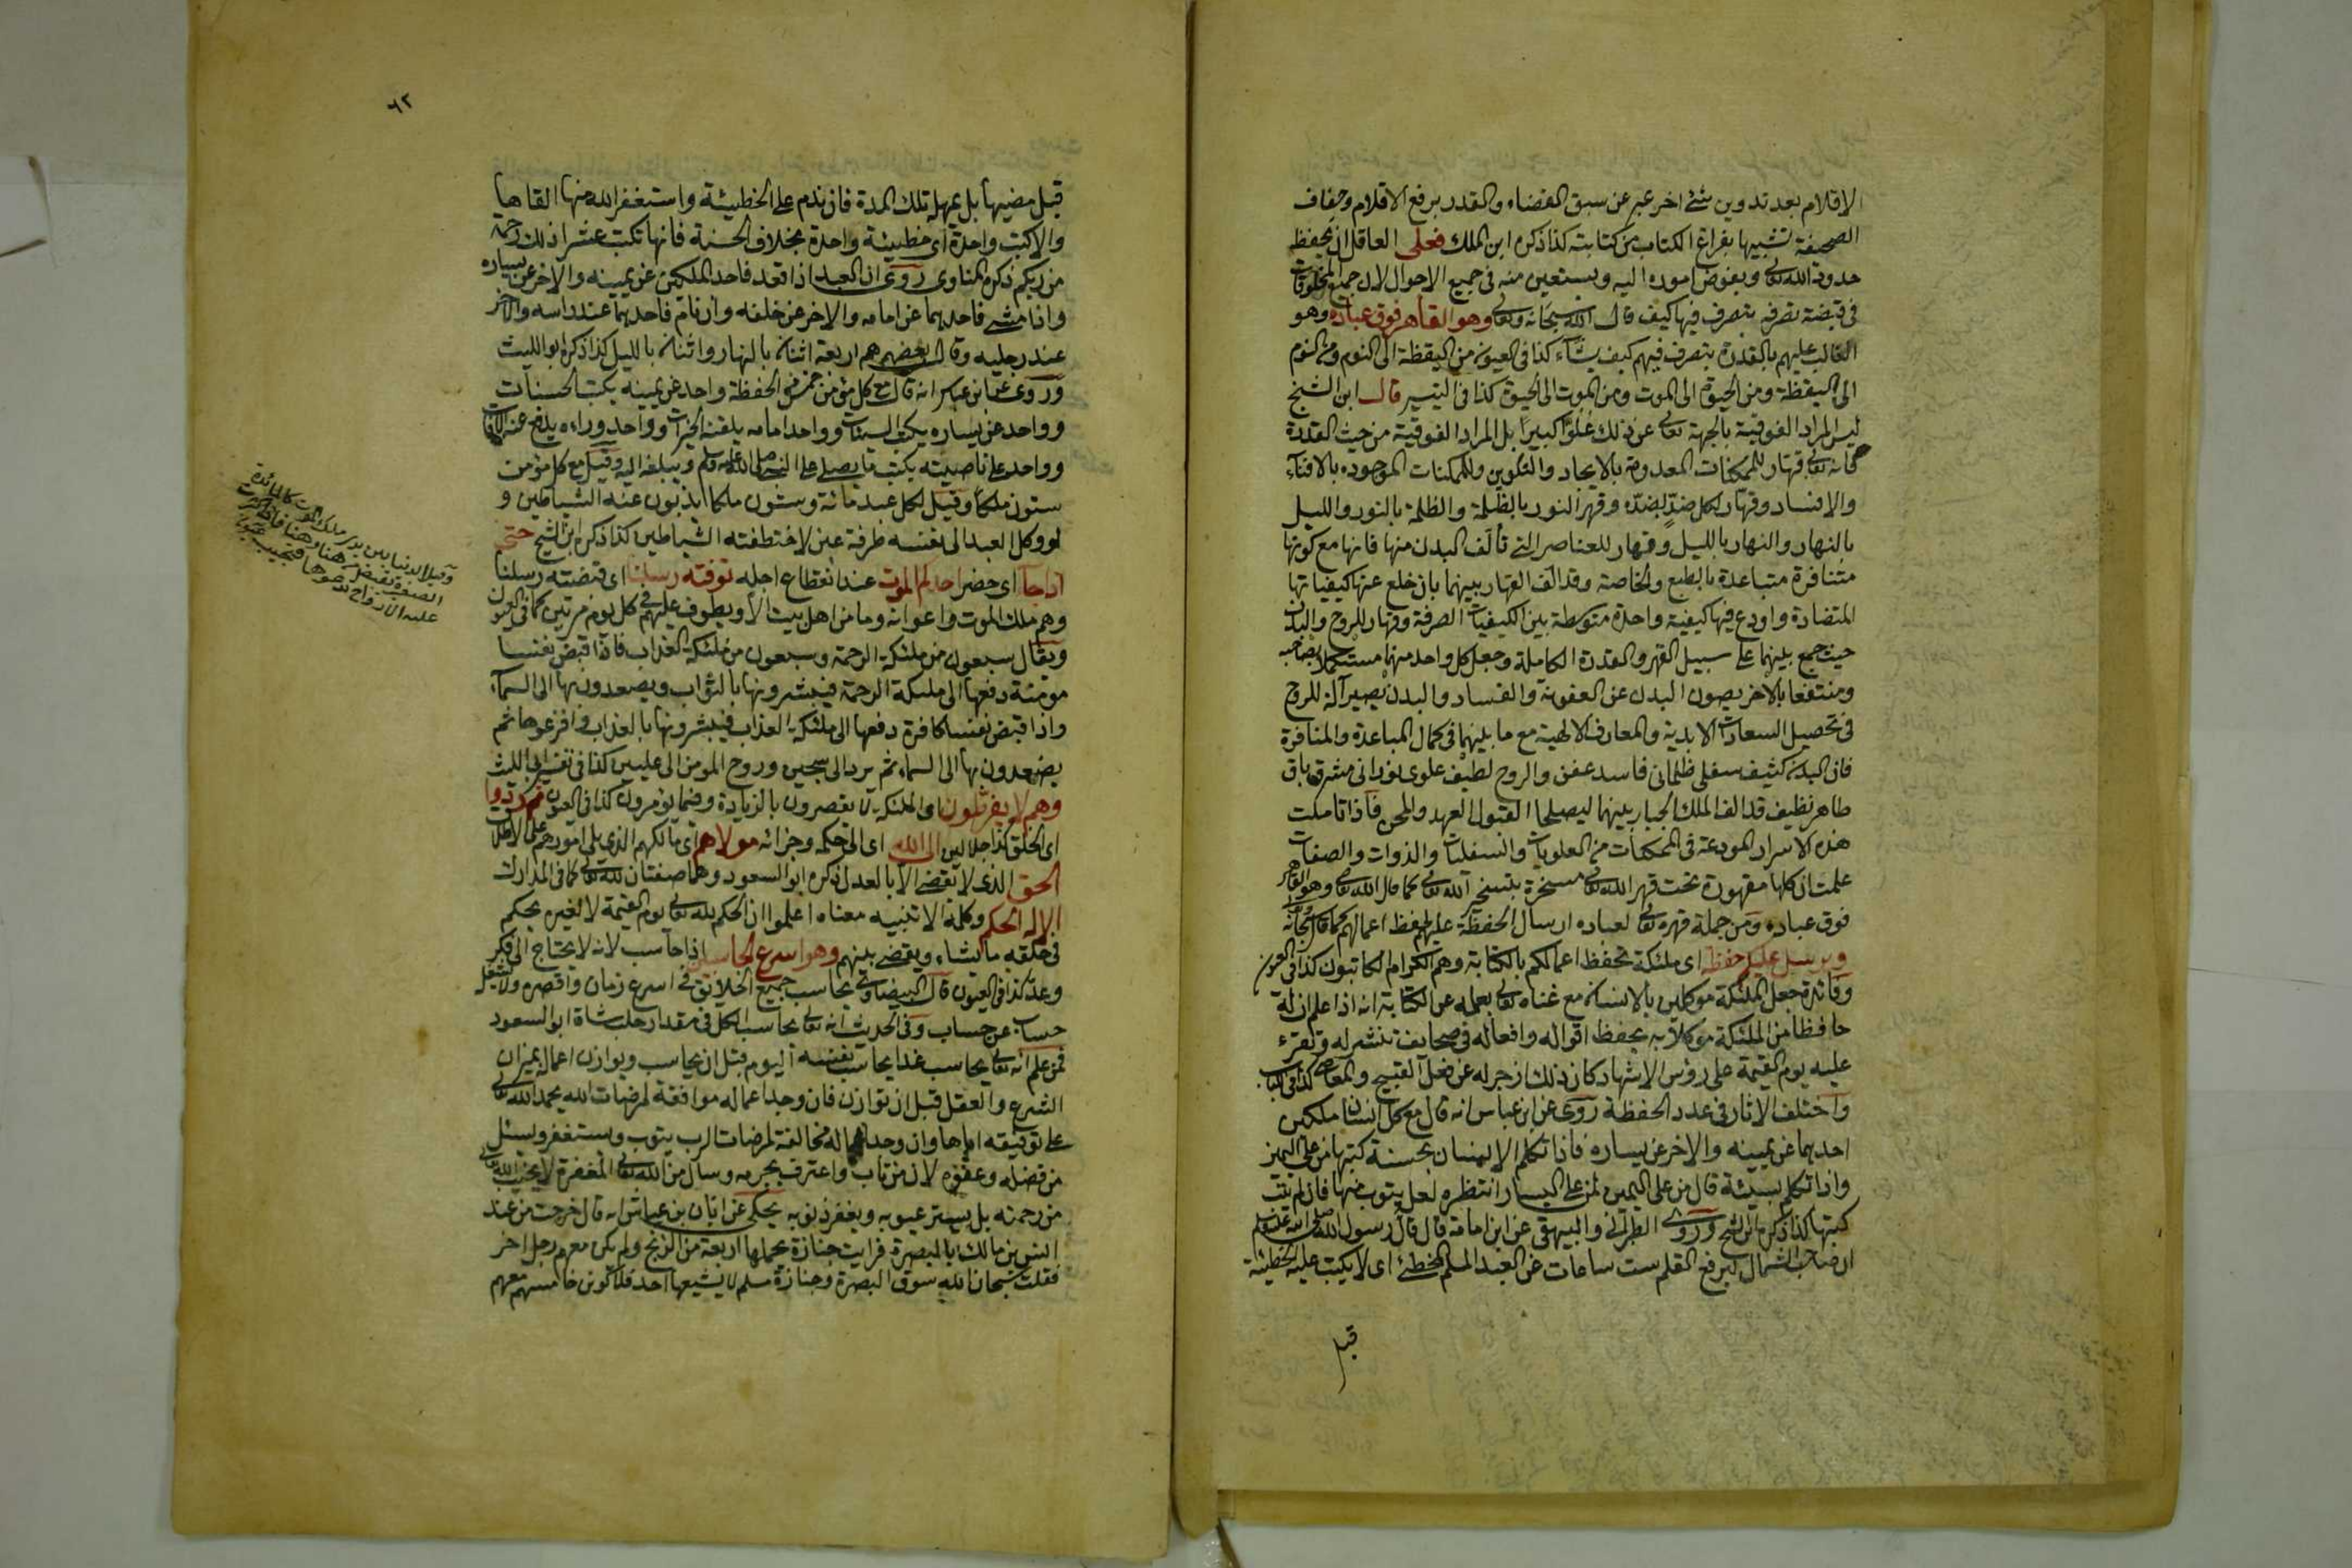 الاقلام بعد تدوين شئ اخر عبر عن سبق القضاء والقدر برفع الاقلام وجفاف
الصحيفة تشبيها بفراغ الكتاب من كتابته كذا ذكره ابن الملك فعلى العاقل ان يحفظ
حدود الله تعالى ويفوض اموره اليه ويستعين منه فى جميع الاحوال لان جميع المخلوقات
فى قبضة تصرفه يتصرف فيها كيف قال الله سبحانه وتعالى وهو القاهر فوق عباده وهو
الغالب عليهم بالقدرة يتصرف فيهم كيف يشاء كذا فى العيون من اليقظة الى النوم ومن النوم
الى اليقظة ومن الحيوة الى الموت ومن الموت الى الحيوة كذا فى التيسير قال ابن الشيخ
ليس المراد الفوقية بالجهة تعالى عن ذلك علوا كبيرا بل المراد الفوقية من حيث القدرة
فانه تعالى قهار للممكنات المعدومة بالايجاد والتكوين وللممكنات الموجوده بالافناء
والافساد وقهار لكل ضد بضده وقهر النور بالظلمة والظلمة بالنور والليل
بالنهار والنهار بالليل وقهار للعناصر التى تألف البدن منها فانها مع كونها
متنافرة متباعدة بالطبع والخاصة وقد الف القهار بينهما بان خلع عنها كيفياتها
المتضادة واودع فيها كيفية واحدة متوسطة بين الكيفيات الصرفة وقهار للروح والبدن
حيث جمع بينهما على سبيل القهر والقدرة الكاملة وجعل كل واحد منهما مستكملا بصاحبه
ومنتفعا بالاخر يصون البدن عن العفونة والفساد والبدن يصير آلة للروح
فى تحصيل السعادات الابدية والمعارف الالهية مع ما بينهما فى كمال المباعدة والمنافرة
فان البدن كثيف سفلى ظلمانى فاسد عفن والروح لطيف علوى نورانى مشرق باق
طاهر نظيف قد الف الملك الجبار بينهما ليصلحا القبول العهد والمحن فاذا تاملت
هذه الاسرار المودعة فى الممكنات من العلويات والسفليات والذوات والصفات
علمت ان كلها مقهورة تحت قهر الله تعالى مسخرة بتسخير الله تعالى كما قال الله تعالى وهو القاهر
فوق عباده ومن جملة قهره تعالى لعباده ارسال الحفظة عليهم لحفظ اعمالهم كما قال سبحانه
ويرسل عليكم حفظة اى ملئكة تحفظ اعمالكم بالكتابة وهم الكرام الكاتبون كذا فى العيون
وفائدة جعل الملئكة موكلين بالانسان مع غناه تعالى بعلمه عن الكتابة انه اذا علم ان له
حافظا من الملئكة موكلا به يحفظ اقواله وافعاله فى صحايف تنشر له وتقرء
عليه يوم القيمة على رؤس الاشهاد كان ذلك ازجر له عن فعل القبيح والمعاصى كذا فى اللباب
واختلف الاثار فى عدد الحفظة روى عن ابن عباس انه قال مع كل انسان ملكين
احدهما عن يمينه والاخر عن يساره فاذا تكلم الانسان بحسنة كتبها من على اليمين
واذا تكلم بسيئة قال من على اليمين لمن على اليسار انتظره لعله يتوب منها فان لم يتب
كتبها كذا ذكره ابن الشيخ وروى الطبرانى والبيهقى عن ابن امامة قال قال رسول الله صلى الله عليه وسلم
ان صاحب الشمال ليرفع القلم ست ساعات عن العبد المسلم المخطئ اى لا يكتب عليه الخطيئة
قبل
٦٢
قبل مضيها بل يمهله تلك المدة فان ندم على الخطيئة واستغفر الله منها القاها
والا كتبت واحدة اى خطيئة واحدة بخلاف الحسنة فانها تكتب عشرا ذلك رحمة
من ربكم ذكره المناوى روى ان العبد اذا قعد فاحد الملكين عن يمينه والاخر عن يساره
واذا مشى فاحدهما عن امامه والاخر عن خلفه وان نام فاحدهما عند راسه والاخر
عند رجليه وقال بعضهم هم اربعة اثنان بالنهار واثنان بالليل كذا ذكره ابو الليث
وروى عن ابن عباس انه قال مع كل مؤمن خمس من الحفظة واحد عن يمينه يكتب الحسنات
وواحد عن يساره يكتب السيئات وواحد امامه يلقنه الخيرات وواحد وراءه يدفع عنه الآفات
وواحد على ناصيته يكتب ما يصلى على النبى صلى الله عليه وسلم ويبلغه اليه وقيل مع كل مؤمن
ستون ملكا وقيل لكل عبد مائة وستون ملكا يذبون عنه الشياطين و
لو وكل العبد الى نفسه طرفة عين لاختطفته الشياطين كذا ذكره ابن الشيخ حتى
اذا جآ اى حضر احدكم الموت عند انقطاع اجله توفته رسلنا اى قبضته رسلنا
وهم ملك الموت واعوانه وما من اهل بيت الا ويطوف عليهم فى كل يوم مرتين كما فى العيون
ويقال سبعون من ملئكة الرحمة وسبعون من ملئكة العذاب فاذا قبض نفسا
مؤمنة دفعها الى ملئكة الرحمة فيبشرونها بالثواب ويصعدون بها الى السمآء
واذا قبض نفسا كافرة دفعها الى ملئكة العذاب فيبشرونها بالعذاب وافزعوها ثم
يصعدون بها الى السماء ثم يرد الى سجين وروح المؤمن الى عليين كذا فى تفسير ابى الليث
وهم لا يفرطون اى الملئكة لا يقصرون بالزيادة وفيما يؤمرون كذا فى العيون ثم ردوا
اى الخلق كذا جلالين الى الله اى الى حكمه وجزائه مولاهم اى مالكهم الذى يلى امورهم على الاطلاق
الحق الذى لا يقضى الا بالعدل ذكره ابو السعود وهما صفتان لله تعالى كما فى المدارك
الا له الحكم وكلمة الا تنبيه معناه اعلموا ان الحكم لله تعالى يوم القيمة لا لغيره يحكم
فى خلقه ما يشاء ويقضى بينهم وهو اسرع الحاسبين اذا حاسب لانه لا يحتاج الى فكر
وعد كذا فى العيون قال البيضاوى يحاسب جميع الخلائق فى اسرع زمان واقصره ولا يشغل
حساب عن حساب وفى الحديث انه تعالى يحاسب الكل فى مقدار حلب شاة ابو السعود
فمن علم انه تعالى يحاسب غدا يحاسب نفسه اليوم قبل ان يحاسب ويوازن اعماله بميزان
الشرع والعقل قبل ان توازن فان وجد اعماله موافقة لمرضات الله يحمد الله تعالى
على توفيقه اياها وان وجد اعماله مخالفة لمرضات الرب يتوب ويستغفر ويسئل
من فضله وعفوه لان من تاب واعترف بجرمه وسأل من الله تعالى المغفرة لا يخيب الله تعالى
من رحمته بل يستر عيوبه ويغفر ذنوبه يحكى عن ابان بن عياش انه قال خرجت من عند
انس بن مالك بالبصرة فرايت جنازة يحملها اربعة من الزنج ولم يكن معهم رجل اخر
فقلت سبحان الله سوق البصرة وجنازة مسلم لا يشيعها احد فلاكونن خامسهم معهم
وقيل الدنيا بين يدى ملك الموت كالمائدة
الصغيرة يقبض من هنا وهنا فاذا كثرت
عليه الارواح يدعوها فتجيب